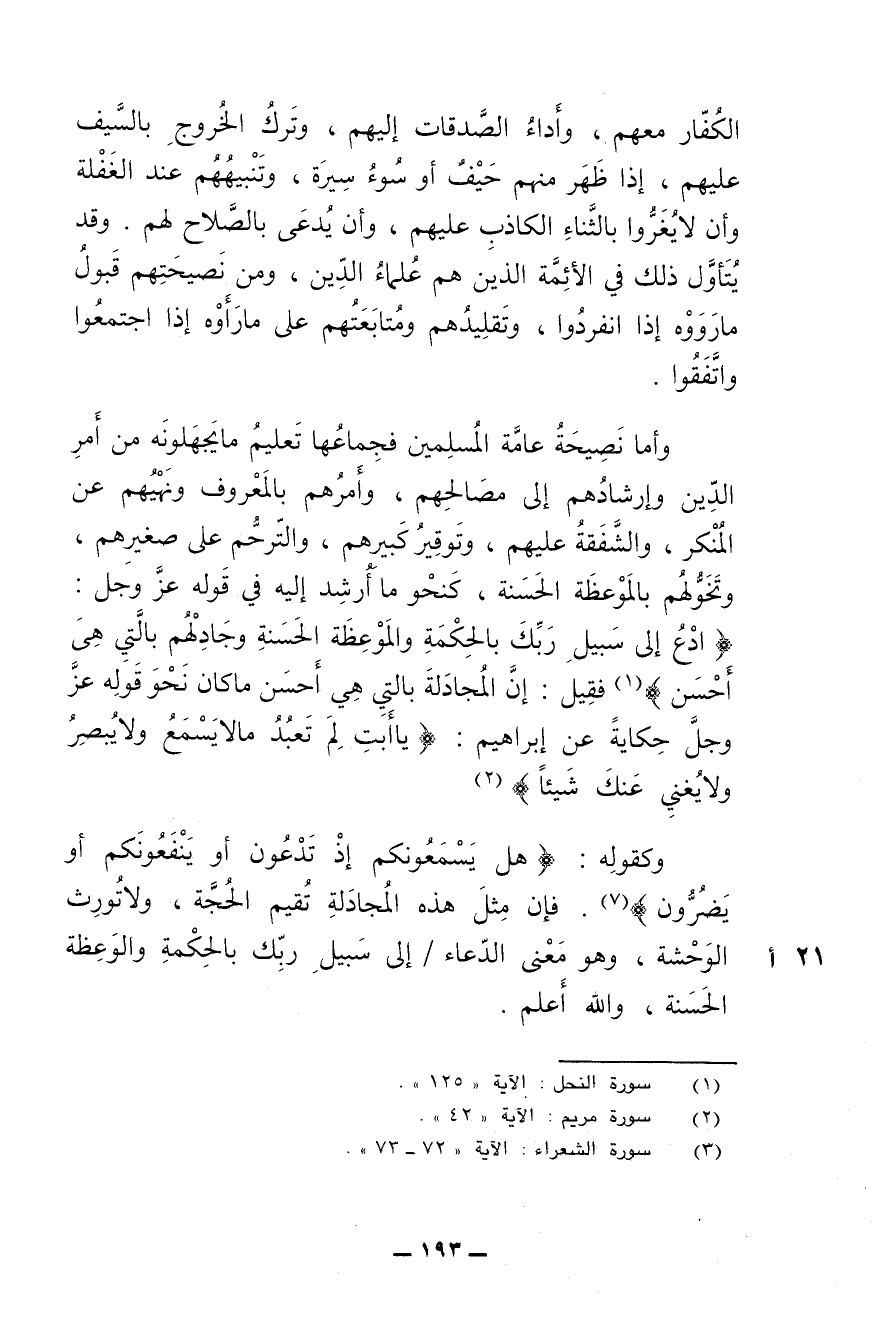 الكُفّار معهم ، وأَداءُ الصَّدقات إليهم ، وتَركُ الخُروجِ بالسَّيف
عليهم ، إذا ظَهَر منهم حَيْفٌ أو سُوءُ سِيرَة ، وتَنْبيهُهُم عند الغَفْلة
وأن لايُغَرُّوا بالثَّناءِ الكاذبِ عليهم ، وأن يُدعَى بالصَّلاح لهم . وقد
يُتَأوَّل ذلك في الأئِمَّة الذين هم عُلماءُ الدِّين ، ومن نَصيحَتِهم قَبولُ
مارَوَوْه إذا انفردُوا ، وتَقلِيدُهم ومُتابَعَتُهم على مارَأَوْه إذا اجتمعُوا
واتَّفَقُوا .
وأما نَصِيحَةُ عامَّة المُسلِمين فجِماعُها تَعليمُ مايَجهَلونَه من أَمرِ
الدِّين وإرشادُهم إلى مصَالحِهم ، وأَمرُهم بالمَعْروف ونَهْيُهم عن
المُنْكر ، والشَّفَقةُ عليهم ، وتَوقِيرُ كَبيرهم ، والتّرحُّم على صغيرهم ،
وتَخَوُّلهُم بالمَوْعظَة الحَسَنة ، كَنحْو ما أُرشِد إليه في قَوله عزَّ وجل :
﴿ ادْعُ إلى سَبيلِ رَبِّكَ بالحِكْمَةِ والمَوْعِظَة الحَسَنةِ وجَادِلْهُم بالَّتي هِىَ
أَحْسَن ﴾(١) فقِيل : إنَّ المُجادَلةَ بالتي هِي أَحسَن ماكان نَحْوَ قَولِه عزَّ
وجلَّ حِكايةً عن إبراهيم : ﴿ ياأَبَتِ لِمَ تَعبُدُ مالايَسْمَعُ ولايُبصِرُ
ولايُغني عَنكَ شَيئاً ﴾ (٢)
وكقولِه : ﴿ هل يَسْمَعُونكم إذْ تَدْعُون أو يَنْفَعُونَكم أو
يَضرُّون ﴾(٧) . فإن مِثلَ هذه المُجادَلةِ تُقيم الحُجَّة ، ولاتُورِث
الوَحْشة ، وهو مَعْنى الدّعاء / إلى سَبيلِ ربِّك بالحِكْمةِ والوَعِظة ٢١ أ
الحَسَنة ، والله أَعلم .
(١) سورة النحل : الآية « ١٢٥ » .
(٢) سورة مريم : الآية « ٤٢ » .
(٣) سورة الشعراء : الآية « ٧٢ ــ ٧٣ » .
ــ ١٩٣ ــ